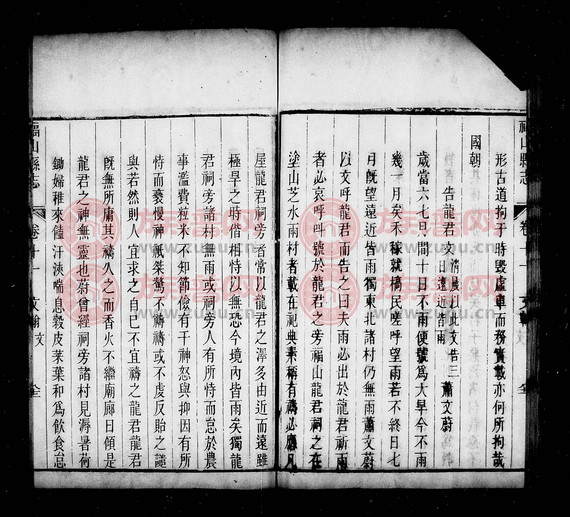 福山縣志
卷十一
文翰 文
形古道拘于時毀虛車而務實載亦何所拘哉
國朝
告龍君文 清晨以此文告三日遠近皆雨 蕭文蔚
歲當六七月間十日不雨便號為大旱今不雨
幾一月矣禾稼就槁民嗟呼望雨若不終日七
月既望遠近皆雨獨東北諸村仍無雨蕭文蔚
以文呼龍君而告之曰夫雨必出於龍君祈雨
者必哀呼呼號於龍君之旁福山龍君祠之在
塗山芝水兩村者載在祀典素稱有禱必應凡
屋龍君祠旁者常以龍君之澤多由近而遠雖
極旱之時借相恃以無恐今境內皆雨矣獨龍
君祠旁諸村無雨或祠旁人有所恃而怠於農
事濫費粒米不知節儉有干神怒與抑因有所
恃而褻慢神祇桀驁不禱禱或不虔反貽之譴
與若然則人宜求之自己不宜疏龍君之神也
既無所庸其禱久之而香火不繼廟廊日傾是
龍君之神無靈也蔚曾經祠旁諸村見溽暑荷
鋤婦稚來饁汗浹喘息穀皮茉葉和為飲食怠
福山縣志
卷十一
文翰 文